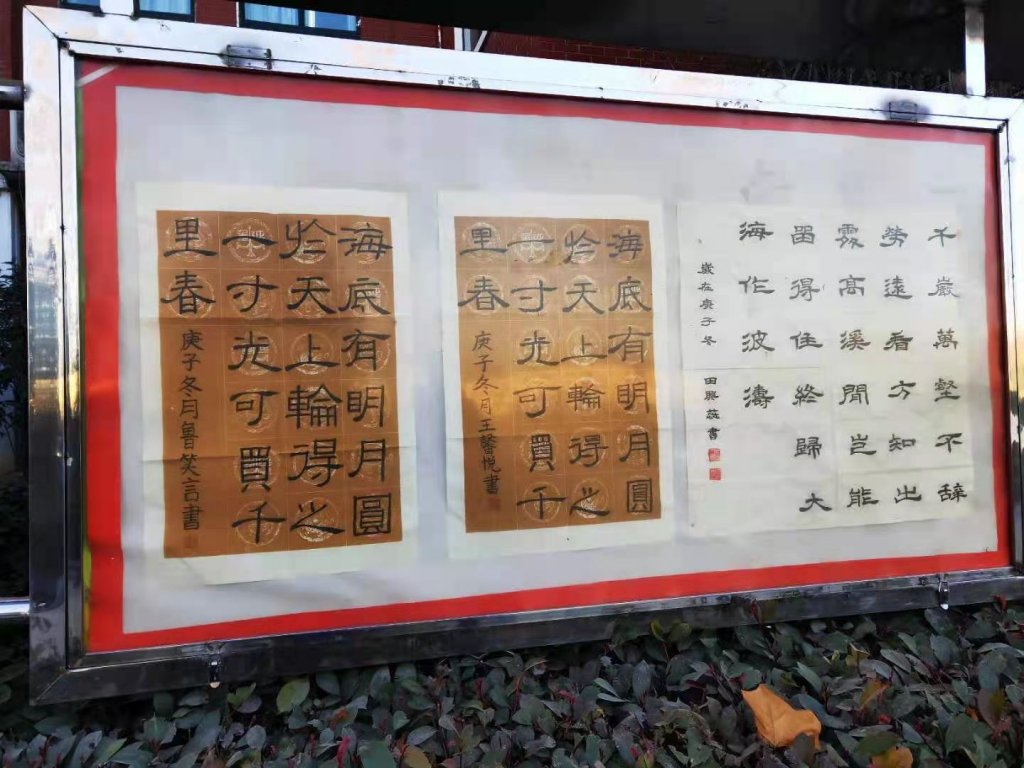 海底有明月圓
於天上輪得之
一寸光可買千
里春
庚子冬月魯笑言書
海底有明月圓
於天上輪得之
一寸光可買千
里春
庚子冬月王馨悅書
千巖萬壑不辭
勞遠看方知出
處高溪間豈能
留得住終歸大
海作波濤
歲在庚子冬
田興蕊書